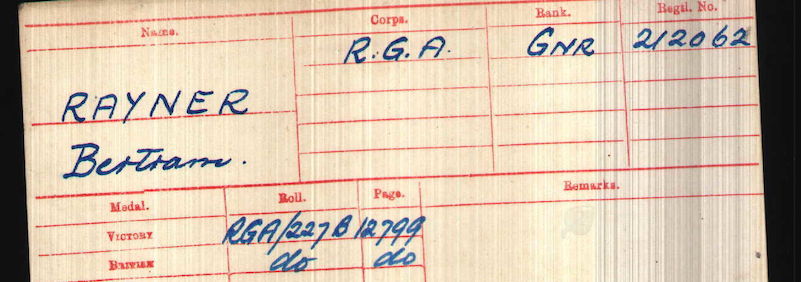 Name. Corps. Rank. Regtl. No.
R.G.A. GNR 212062
RAYNER
Bertram.
Medal. Roll. Page. Remarks.
VICTORY RGA/227B 12799
BRITISH do do